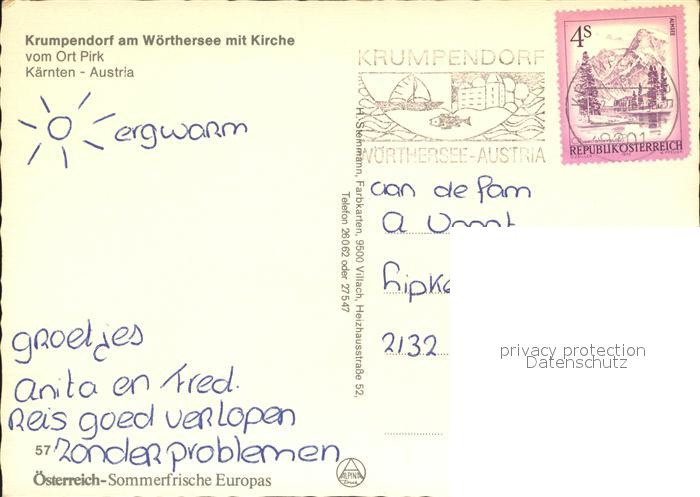 Krumpendorf am Wörthersee mit Kirche
vom Ort Pirk
Kärnten - Austria
ergwarm
groetjes
Anita en Fred.
Reis goed verlopen
zonder problemen
57
Österreich-Sommerfrische Europas
ALPINA
H. Steinmann, Farbkarten, 9500 Villach, Heizhausstraße 52,
Telefon 26062 oder 27547
KRUMPENDORF
WÖRTHERSEE-AUSTRIA
4s
ALMSEE
REPUBLIK ÖSTERREICH
9201
aan de fam
A
2132
privacy protection
Datenschutz